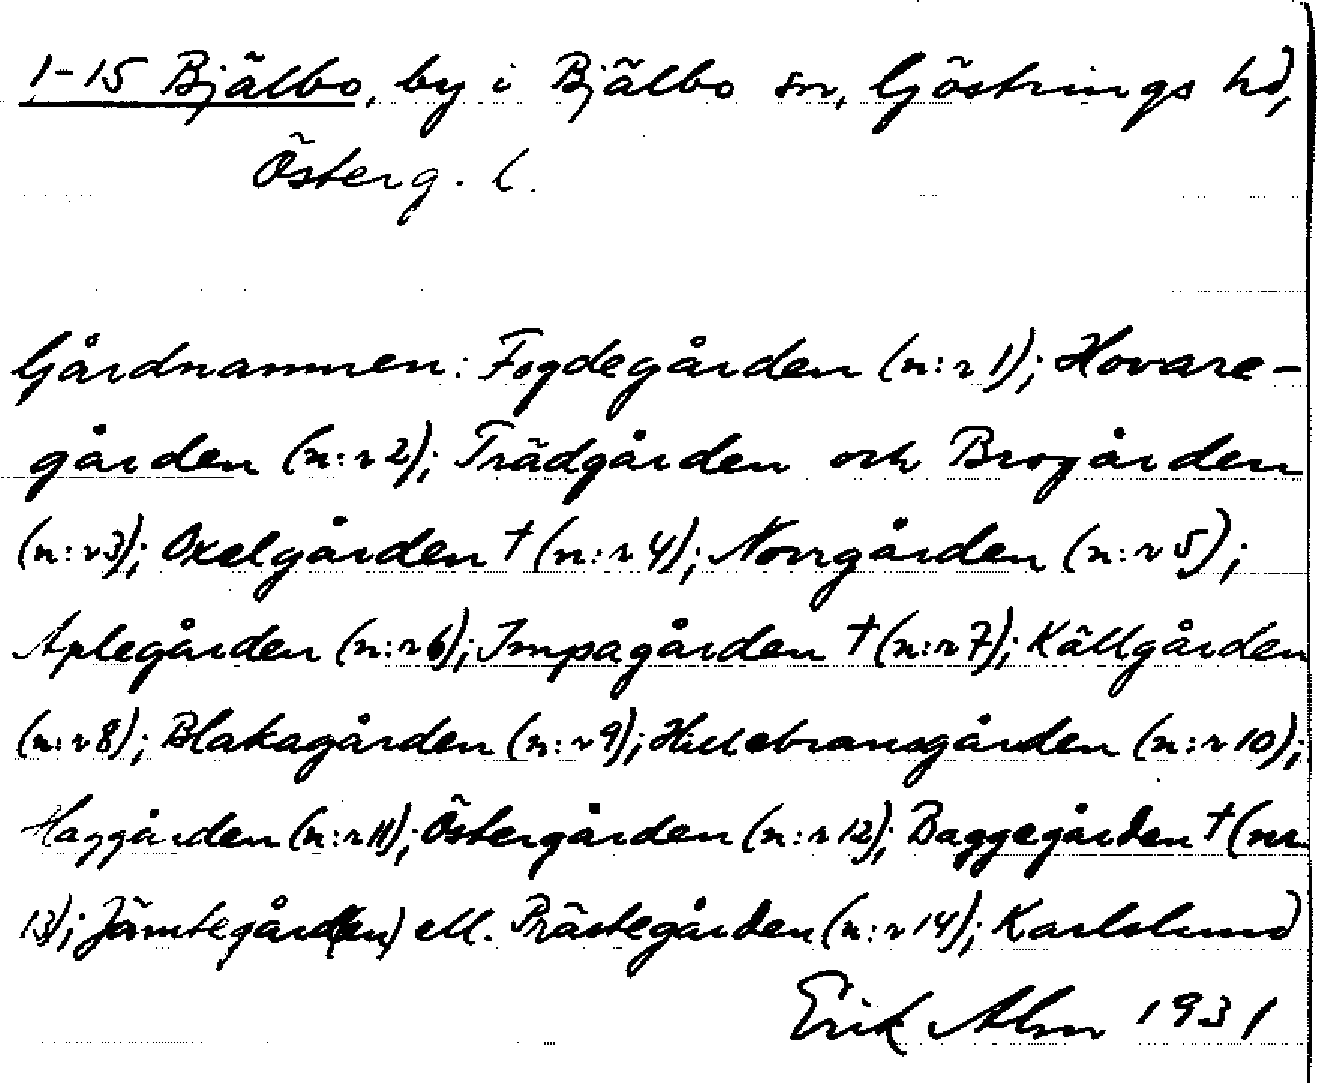 1-15 Bjälbo, by i Bjälbo sn, Göstrings hd,
Österg. l.
Gårdnamnen: Fogdegården (n:r 1); Hovare-
gården (n:r 2); Trädgården och Brogården
(n:r 3); Oxelgården † (n:r 4); Norrgården (n:r 5);
Aplegården (n:r 6); Impagården † (n:r 7); Källgården
(n:r 8); Blakagården (n:r 9); Hillebransgården (n:r 10);
Haggården (n:r 11); Östergården (n:r 12); Baggegården † (nr
13); Jämtegård(en) ell. Prästegården (n:r 14); Karlslund
Erik Alm 1931